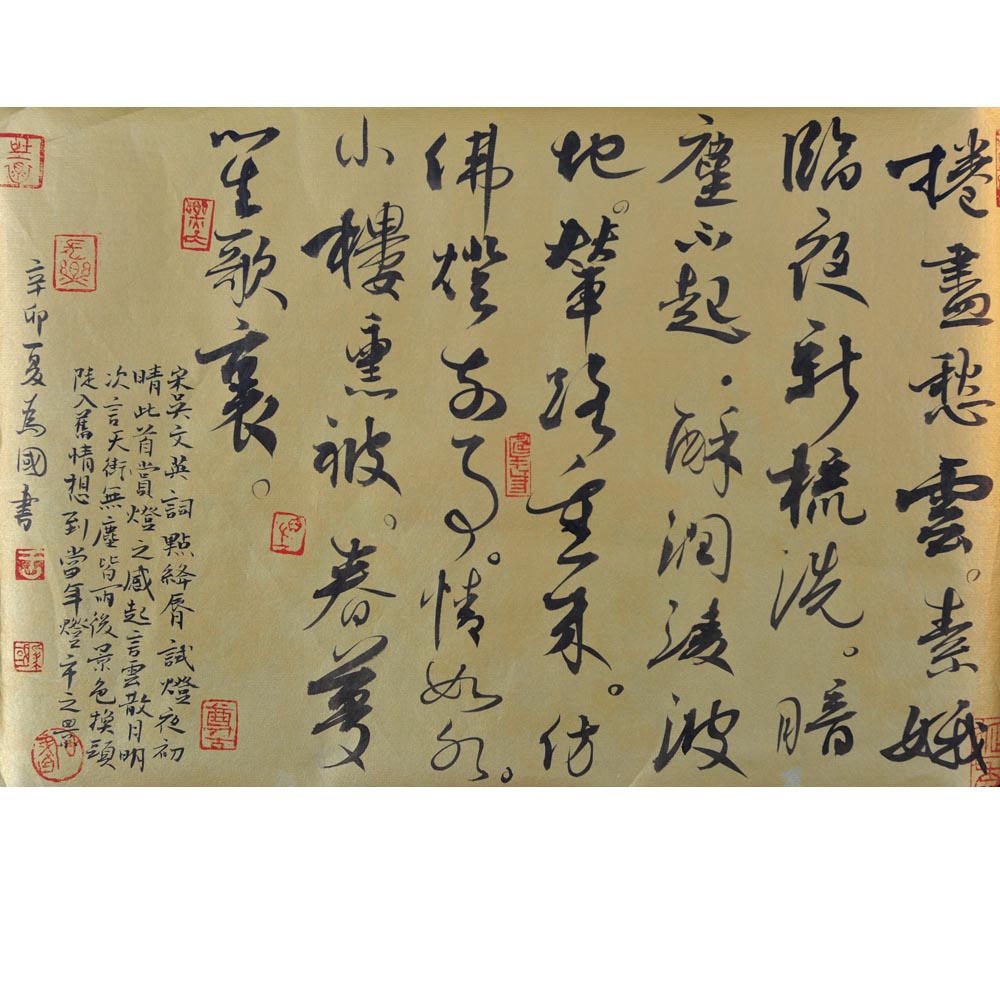 捲盡愁雲。素娥
臨夜新梳洗。暗
塵不起。酥潤淩波
地。輦路重來。仿
佛燈前事。情如水。
小樓熏被。春夢
笙歌裏。
宋吳文英詞點絳脣試燈夜初
晴此首賞燈之感起言雲散月明
次言天街無塵皆雨後景色換頭
陡入舊情想到當年燈市之景
辛卯夏為國書